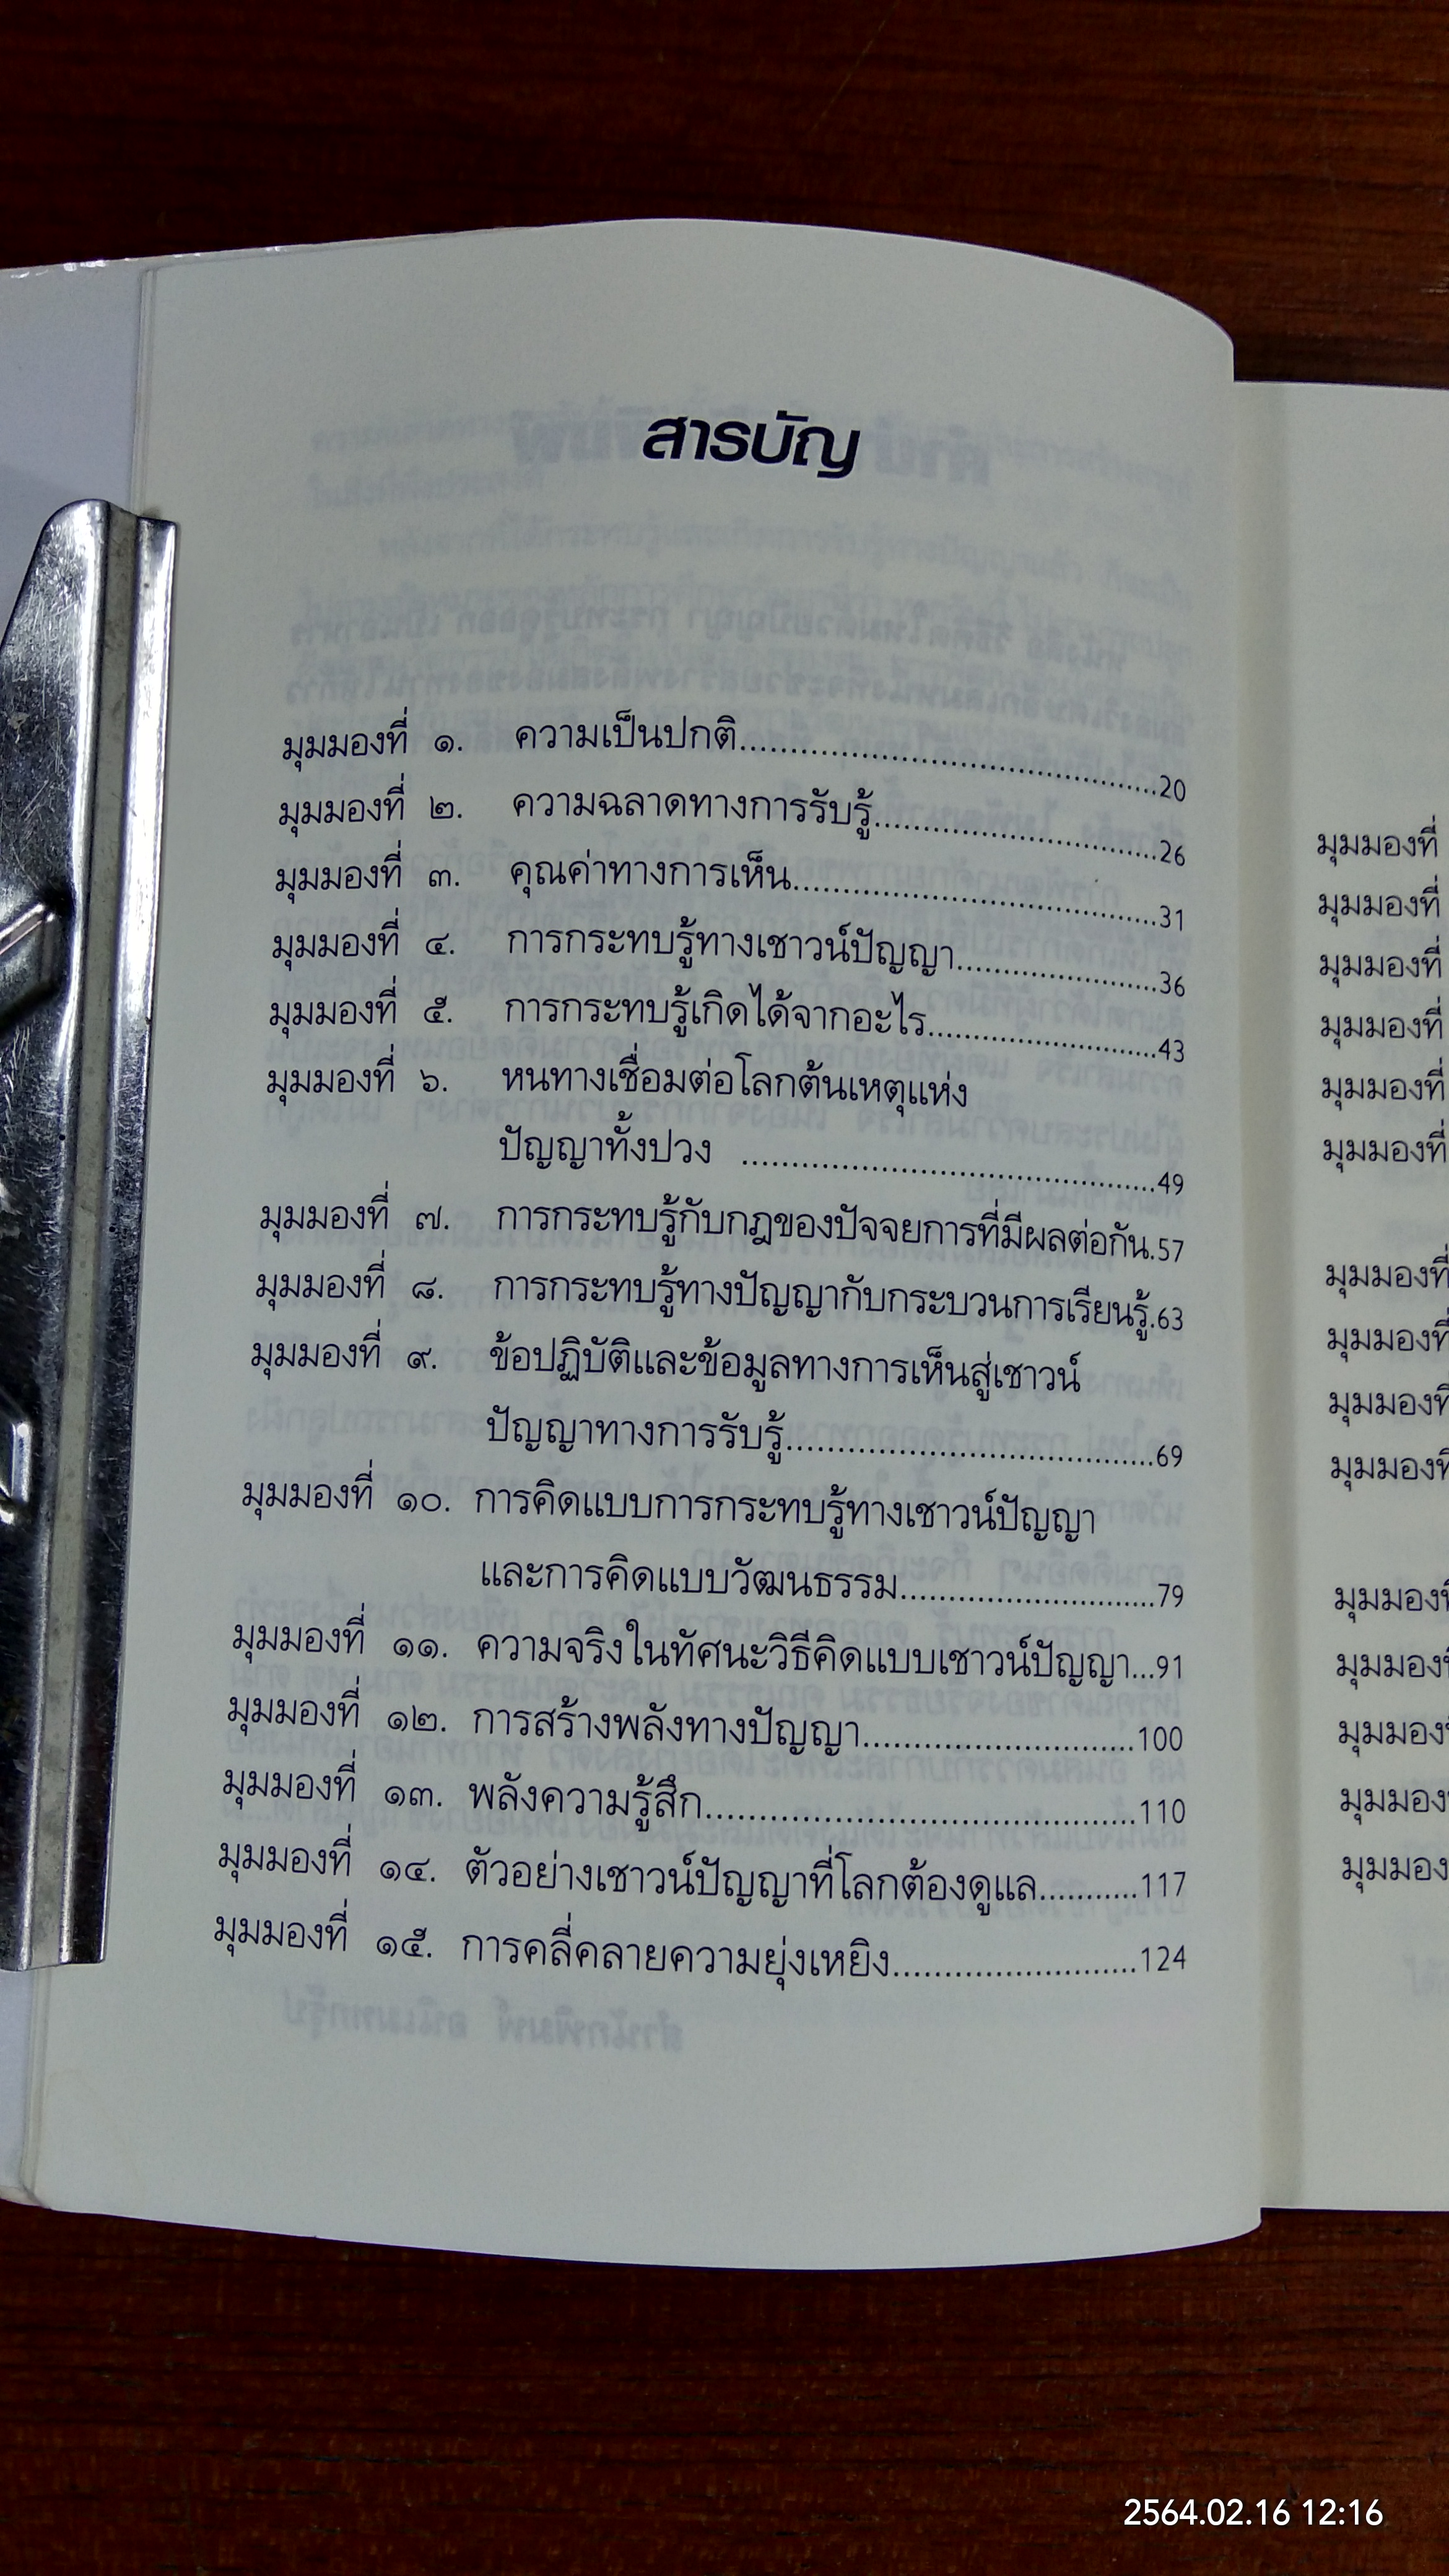 สารบัญ
มุมมองที่ ๑. ความเป็นปกติ........................................20
มุมมองที่ ๒. ความฉลาดทางการรับรู้...........................26
มุมมองที่ ๓. คุณค่าทางการเห็น...................................31
มุมมองที่ ๔. การกระทบรู้ทางเชาวน์ปัญญา...................36
มุมมองที่ ๕. การกระทบรู้เกิดได้จากอะไร......................43
มุมมองที่ ๖. หนทางเชื่อมต่อโลกต้นเหตุแห่ง
ปัญญาทั้งปวง ........................................49
มุมมองที่ ๗. การกระทบรู้กับกฎของปัจจยการที่มีผลต่อกัน.57
มุมมองที่ ๘. การกระทบรู้ทางปัญญากับกระบวนการเรียนรู้.63
มุมมองที่ ๙. ข้อปฏิบัติและข้อมูลทางการเห็นสู่เชาวน์
ปัญญาทางการรับรู้....................................69
มุมมองที่ ๑๐. การคิดแบบการกระทบรู้ทางเชาวน์ปัญญา
และการคิดแบบวัฒนธรรม.........................79
มุมมองที่ ๑๑. ความจริงในทัศนะวิธีคิดแบบเชาวน์ปัญญา...91
มุมมองที่ ๑๒. การสร้างพลังทางปัญญา..........................100
มุมมองที่ ๑๓. พลังความรู้สึก..........................................110
มุมมองที่ ๑๔. ตัวอย่างเชาวน์ปัญญาที่โลกต้องดูแล...........117
มุมมองที่ ๑๕. การคลี่คลายความยุ่งเหยิง........................124
มุมมองที่
มุมมองที่
มุมมองที่
มุมมองที่
มุมมองที่
มุมมองที่
มุมมองที่
มุมมองที่
มุมมองที่
มุมมองที่
มุมมองที่
มุมมองที่
2564.02.16 12:16